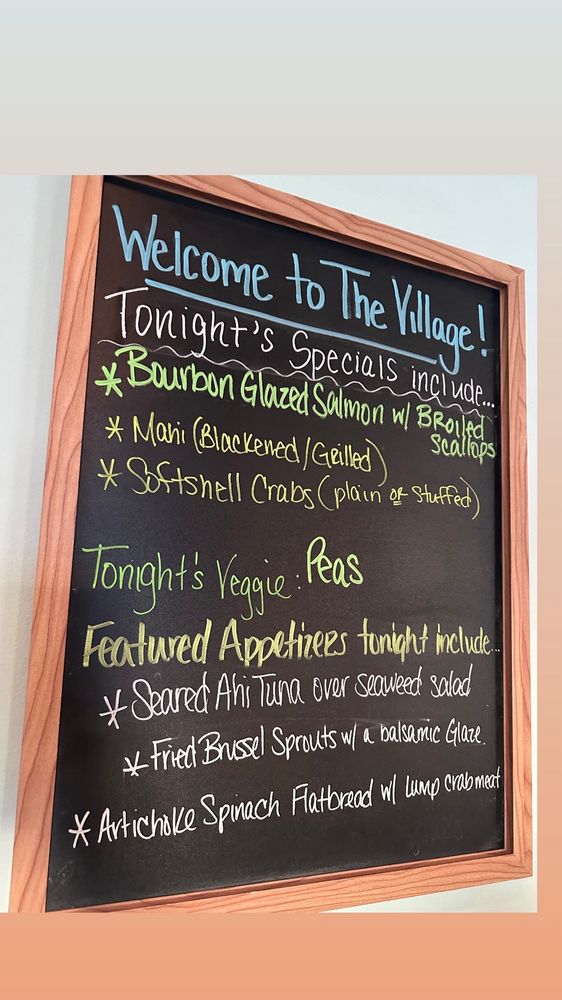 Welcome to The Village!
Tonight's Specials include...
* Bourbon Glazed Salmon w/ Broiled
scallops
* Mahi (Blackened/Grilled)
* Softshell Crabs (plain or stuffed)
Tonight's Veggie: Peas
Featured Appetizers tonight include...
* Seared Ahi Tuna over seaweed salad
* Fried Brussel Sprouts w/ a balsamic Glaze.
* Artichoke Spinach Flatbread w/ lump crabmeat